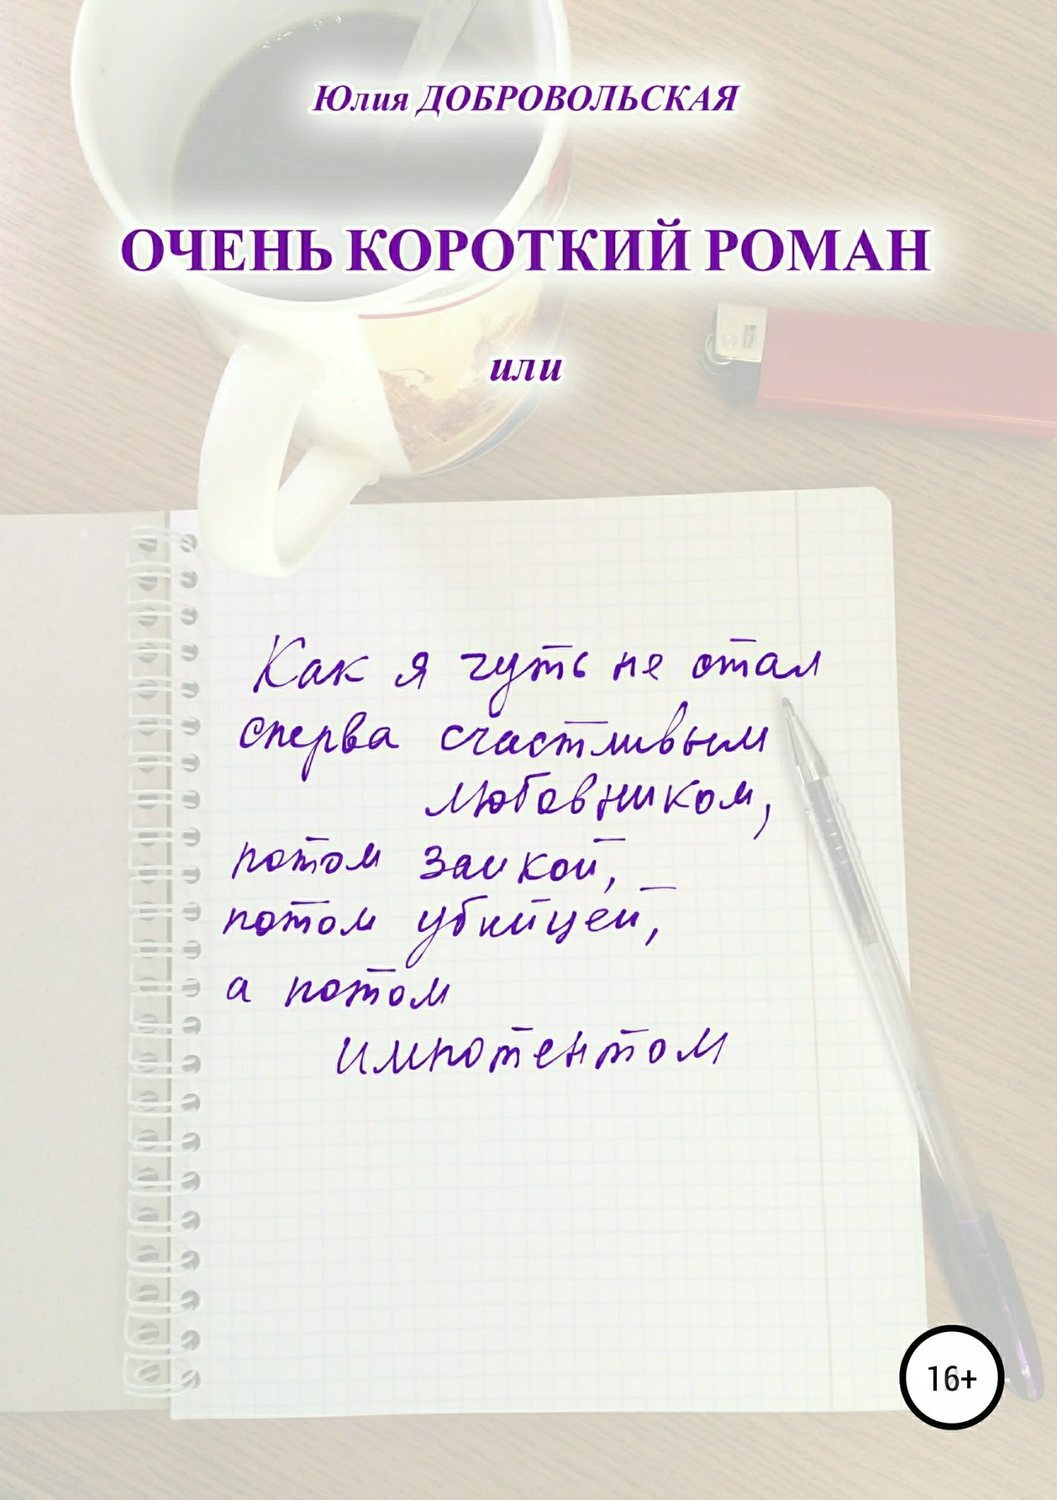 Юлия ДОБРОВОЛЬСКАЯ
ОЧЕНЬ КОРОТКИЙ РОМАН
или
Как я чуть не стал
сперва счастливым
любовником,
потом заикой,
потом убийцей,
а потом
импотентом
16+